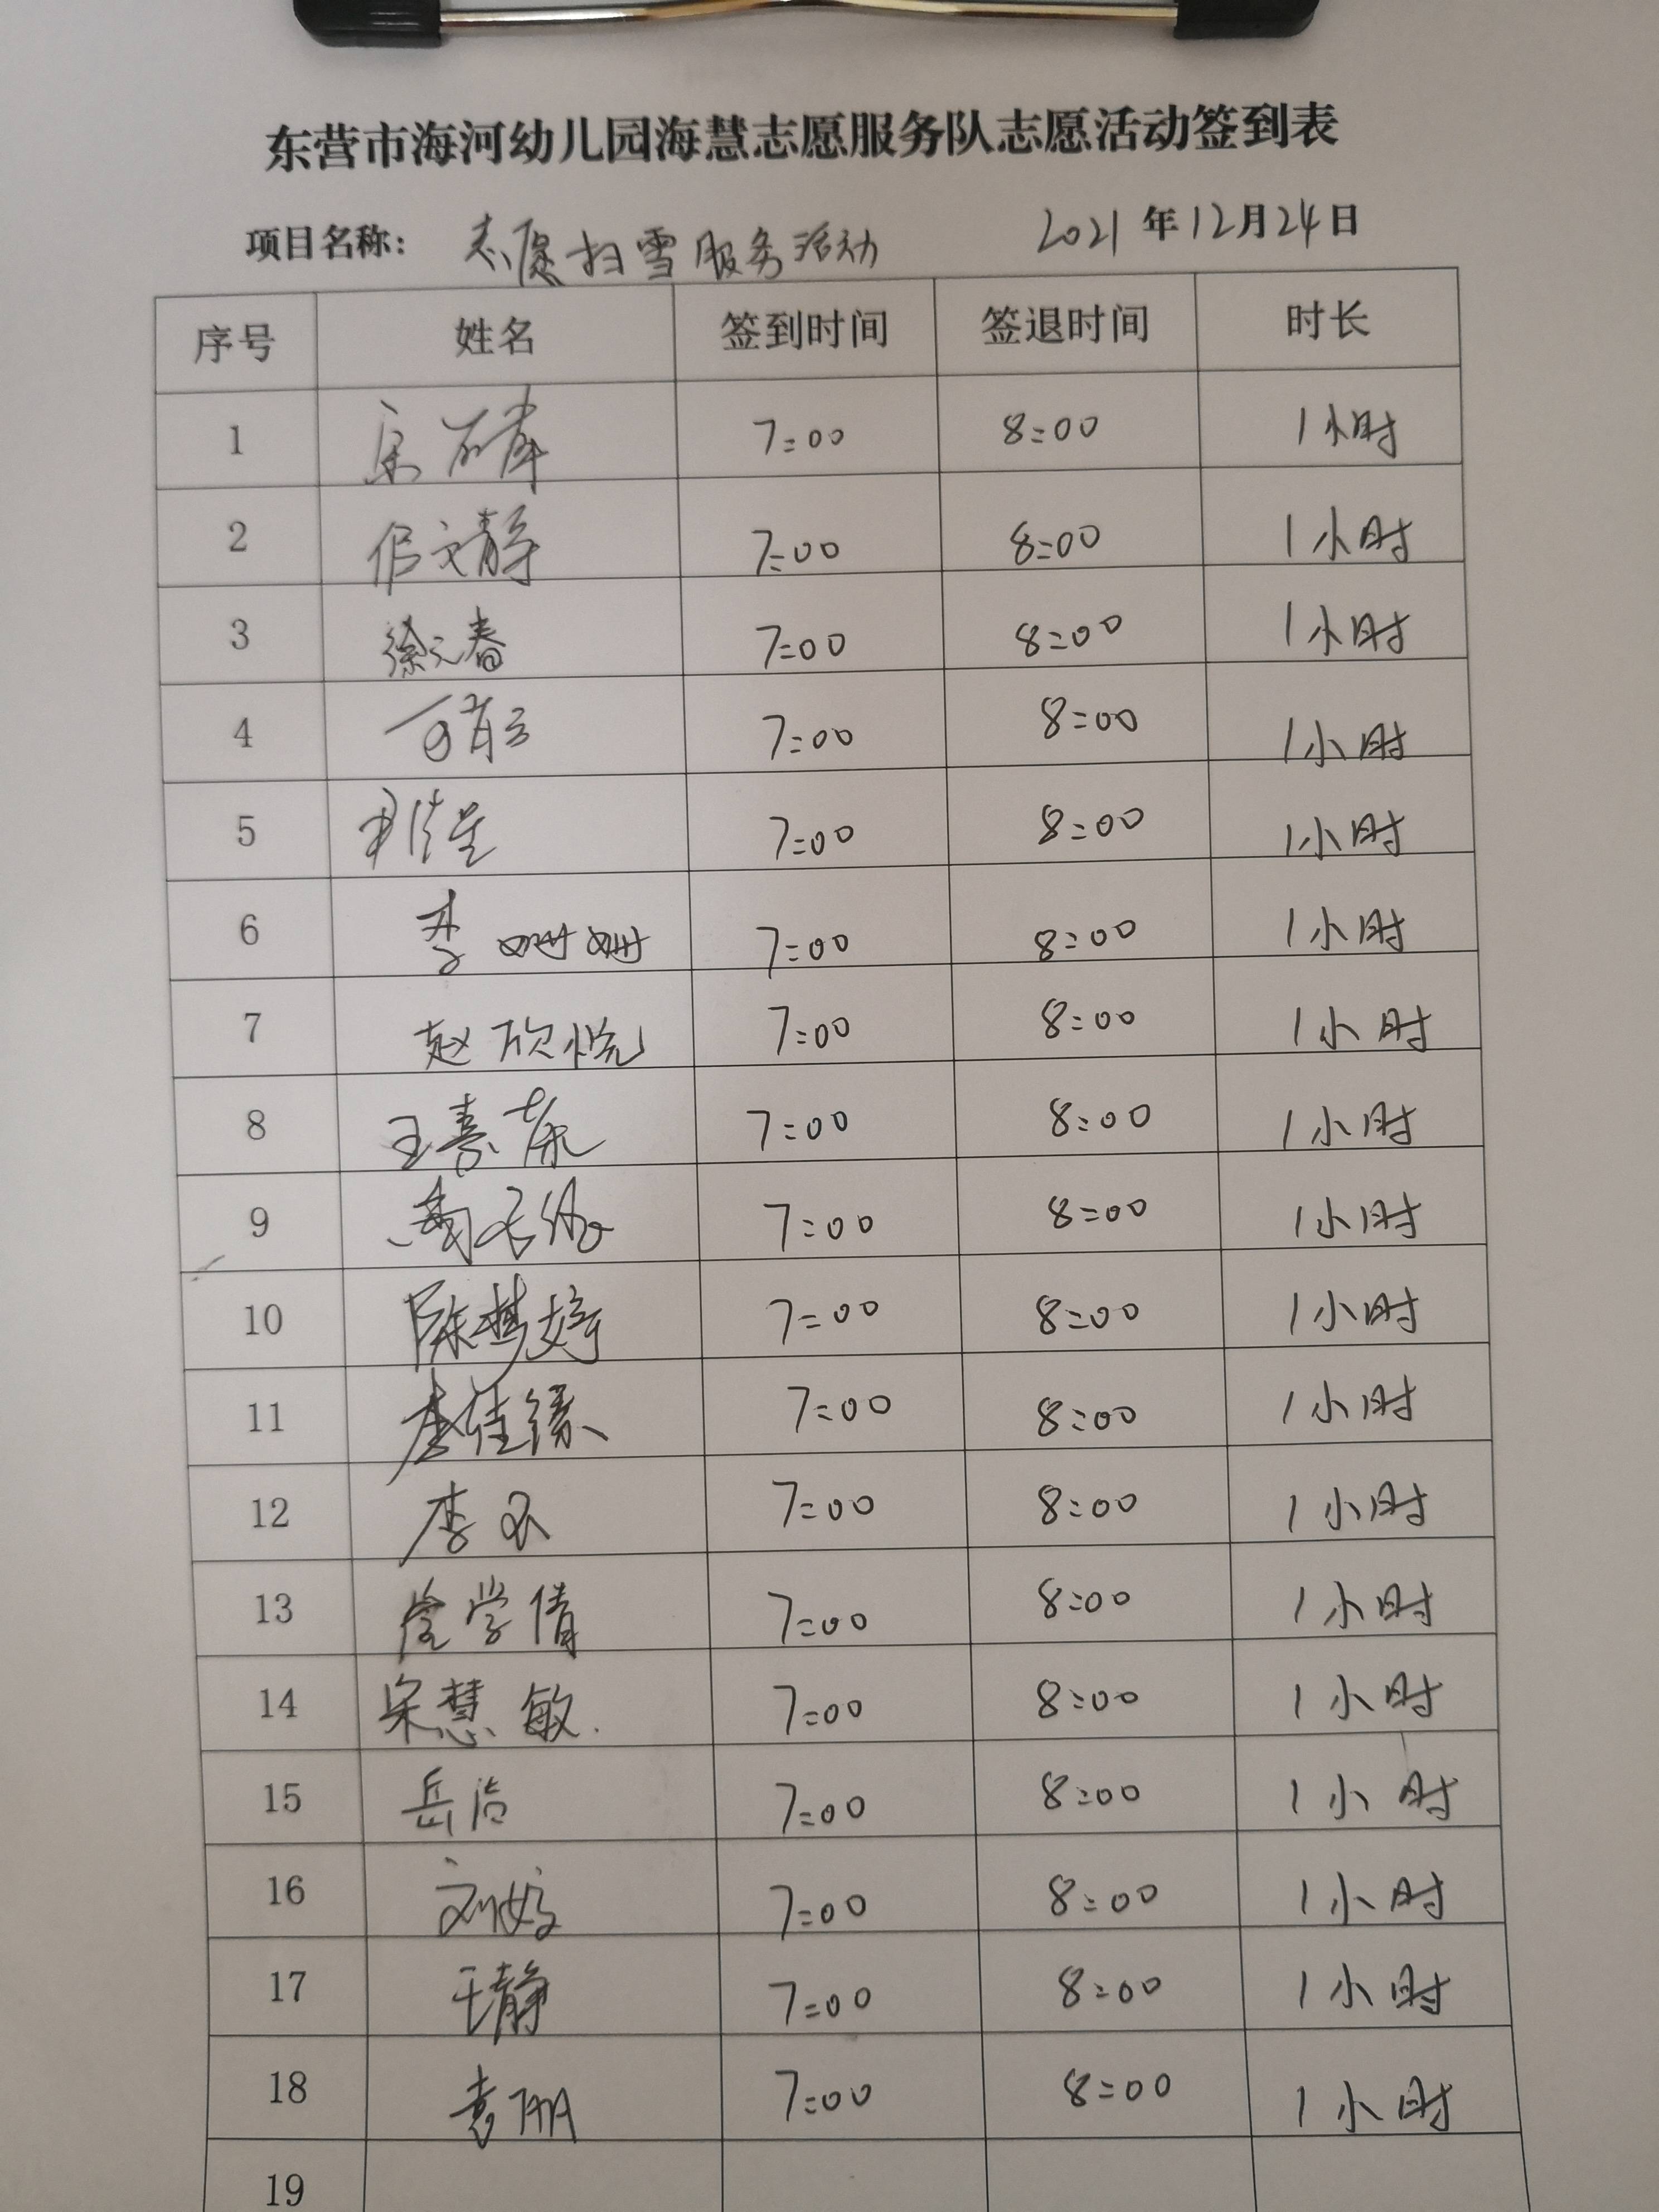 东营市海河幼儿园海慧志愿服务队志愿活动签到表
项目名称： 志愿扫雪服务活动 2021年12月24日
序号 姓名 签到时间 签退时间 时长
1 7:00 8:00 1小时
2 侯文静 7:00 8:00 1小时
3 徐元春 7:00 8:00 1小时
4 7:00 8:00 1小时
5 7:00 8:00 1小时
6 李姗姗 7:00 8:00 1小时
7 赵欣悦 7:00 8:00 1小时
8 王喜荣 7:00 8:00 1小时
9 7:00 8:00 1小时
10 陈梦婷 7:00 8:00 1小时
11 李佳缘 7:00 8:00 1小时
12 李 7:00 8:00 1小时
13 学倩 7:00 8:00 1小时
14 宋慧敏 7:00 8:00 1小时
15 岳洁 7:00 8:00 1小时
16 刘 7:00 8:00 1小时
17 王静 7:00 8:00 1小时
18 袁 7:00 8:00 1小时
19